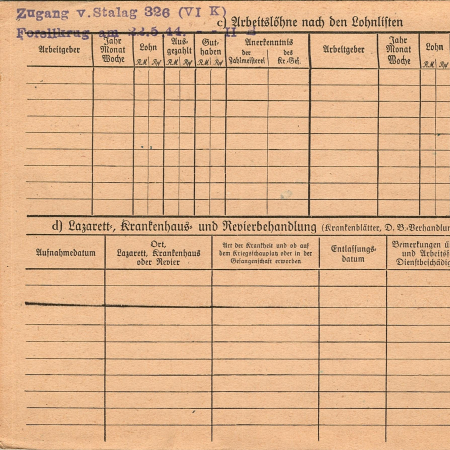 Zugang v. Stalag 326 (VI K)
Forellkrug am 22.5.44.
c) Arbeitslöhne nach den Lohnlisten
Arbeitgeber
Jahr Monat Woche
Lohn
Ausgezahlt
Guthaben
Anerkenntnis
der Zahlmeisterei
des Kr.-Gef.
Arbeitgeber
Jahr Monat Woche
Lohn
RM Rpf RM Rpf RM Rpf RM Rpf
d) Lazarett-, Krankenhaus- und Revierbehandlung (Krankenblätter, D. B.-Verhandlun
Aufnahmedatum
Ort,
Lazarett, Krankenhaus
oder Revier
Art der Krankheit und ob auf
dem Kriegsschauplatz oder in der
Gefangenschaft erworben
Entlassungs-
datum
Bemerkungen ü
und Arbeitsf
Dienstbeschädig